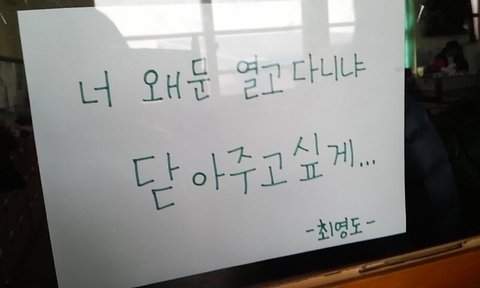 너 왜 문 열고 다니냐
닫아주고싶게...
-최영도-